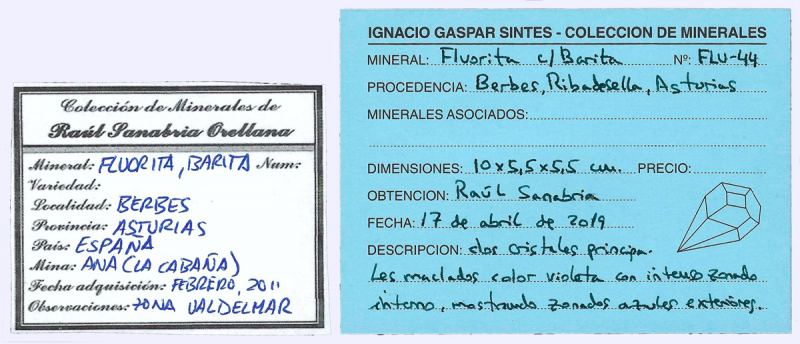 Colección de Minerales de
Raúl Sanabria Orellana
Mineral: FLUORITA, BARITA Num:
Variedad:
Localidad: BERBES
Provincia: ASTURIAS
País: ESPAÑA
Mina: ANA (LA CABAÑA)
Fecha adquisición: FEBRERO, 2011
Observaciones: ZONA VALDELMAR
IGNACIO GASPAR SINTES - COLECCION DE MINERALES
MINERAL: Fluorita c/Barita Nº: FLU-44
PROCEDENCIA: Berbes, Ribadesella, Asturias
MINERALES ASOCIADOS:
DIMENSIONES: 10x5,5x5,5 cm. PRECIO:
OBTENCION: Raúl Sanabria
FECHA: 17 de abril de 2019
DESCRIPCION: dos cristales principa.
les maclados color violeta con intenso zonado
interno, mostrando zonados azules exteriores.